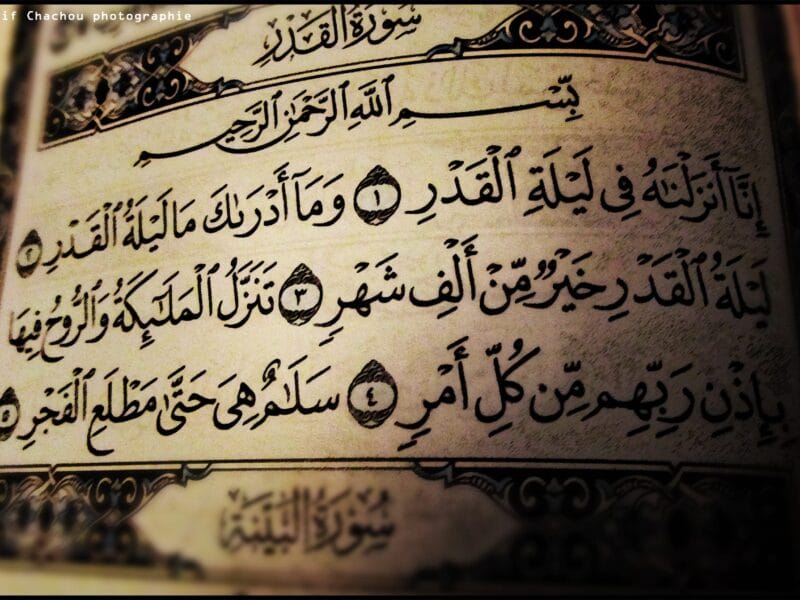 if Chachou photographie
سُورَةُ الْقَدْرِ
بِسْمِ ٱللَّهِ ٱلرَّحْمَٰنِ ٱلرَّحِيمِ
إِنَّآ أَنزَلْنَٰهُ فِى لَيْلَةِ ٱلْقَدْرِ ١ وَمَآ أَدْرَىٰكَ مَا لَيْلَةُ ٱلْقَدْرِ ٢
لَيْلَةُ ٱلْقَدْرِ خَيْرٌ مِّنْ أَلْفِ شَهْرٍ ٣ تَنَزَّلُ ٱلْمَلَٰٓئِكَةُ وَٱلرُّوحُ فِيهَا
بِإِذْنِ رَبِّهِم مِّن كُلِّ أَمْرٍ ٤ سَلَٰمٌ هِىَ حَتَّىٰ مَطْلَعِ ٱلْفَجْرِ ٥
سُورَةُ الْبَيِّنَةِ